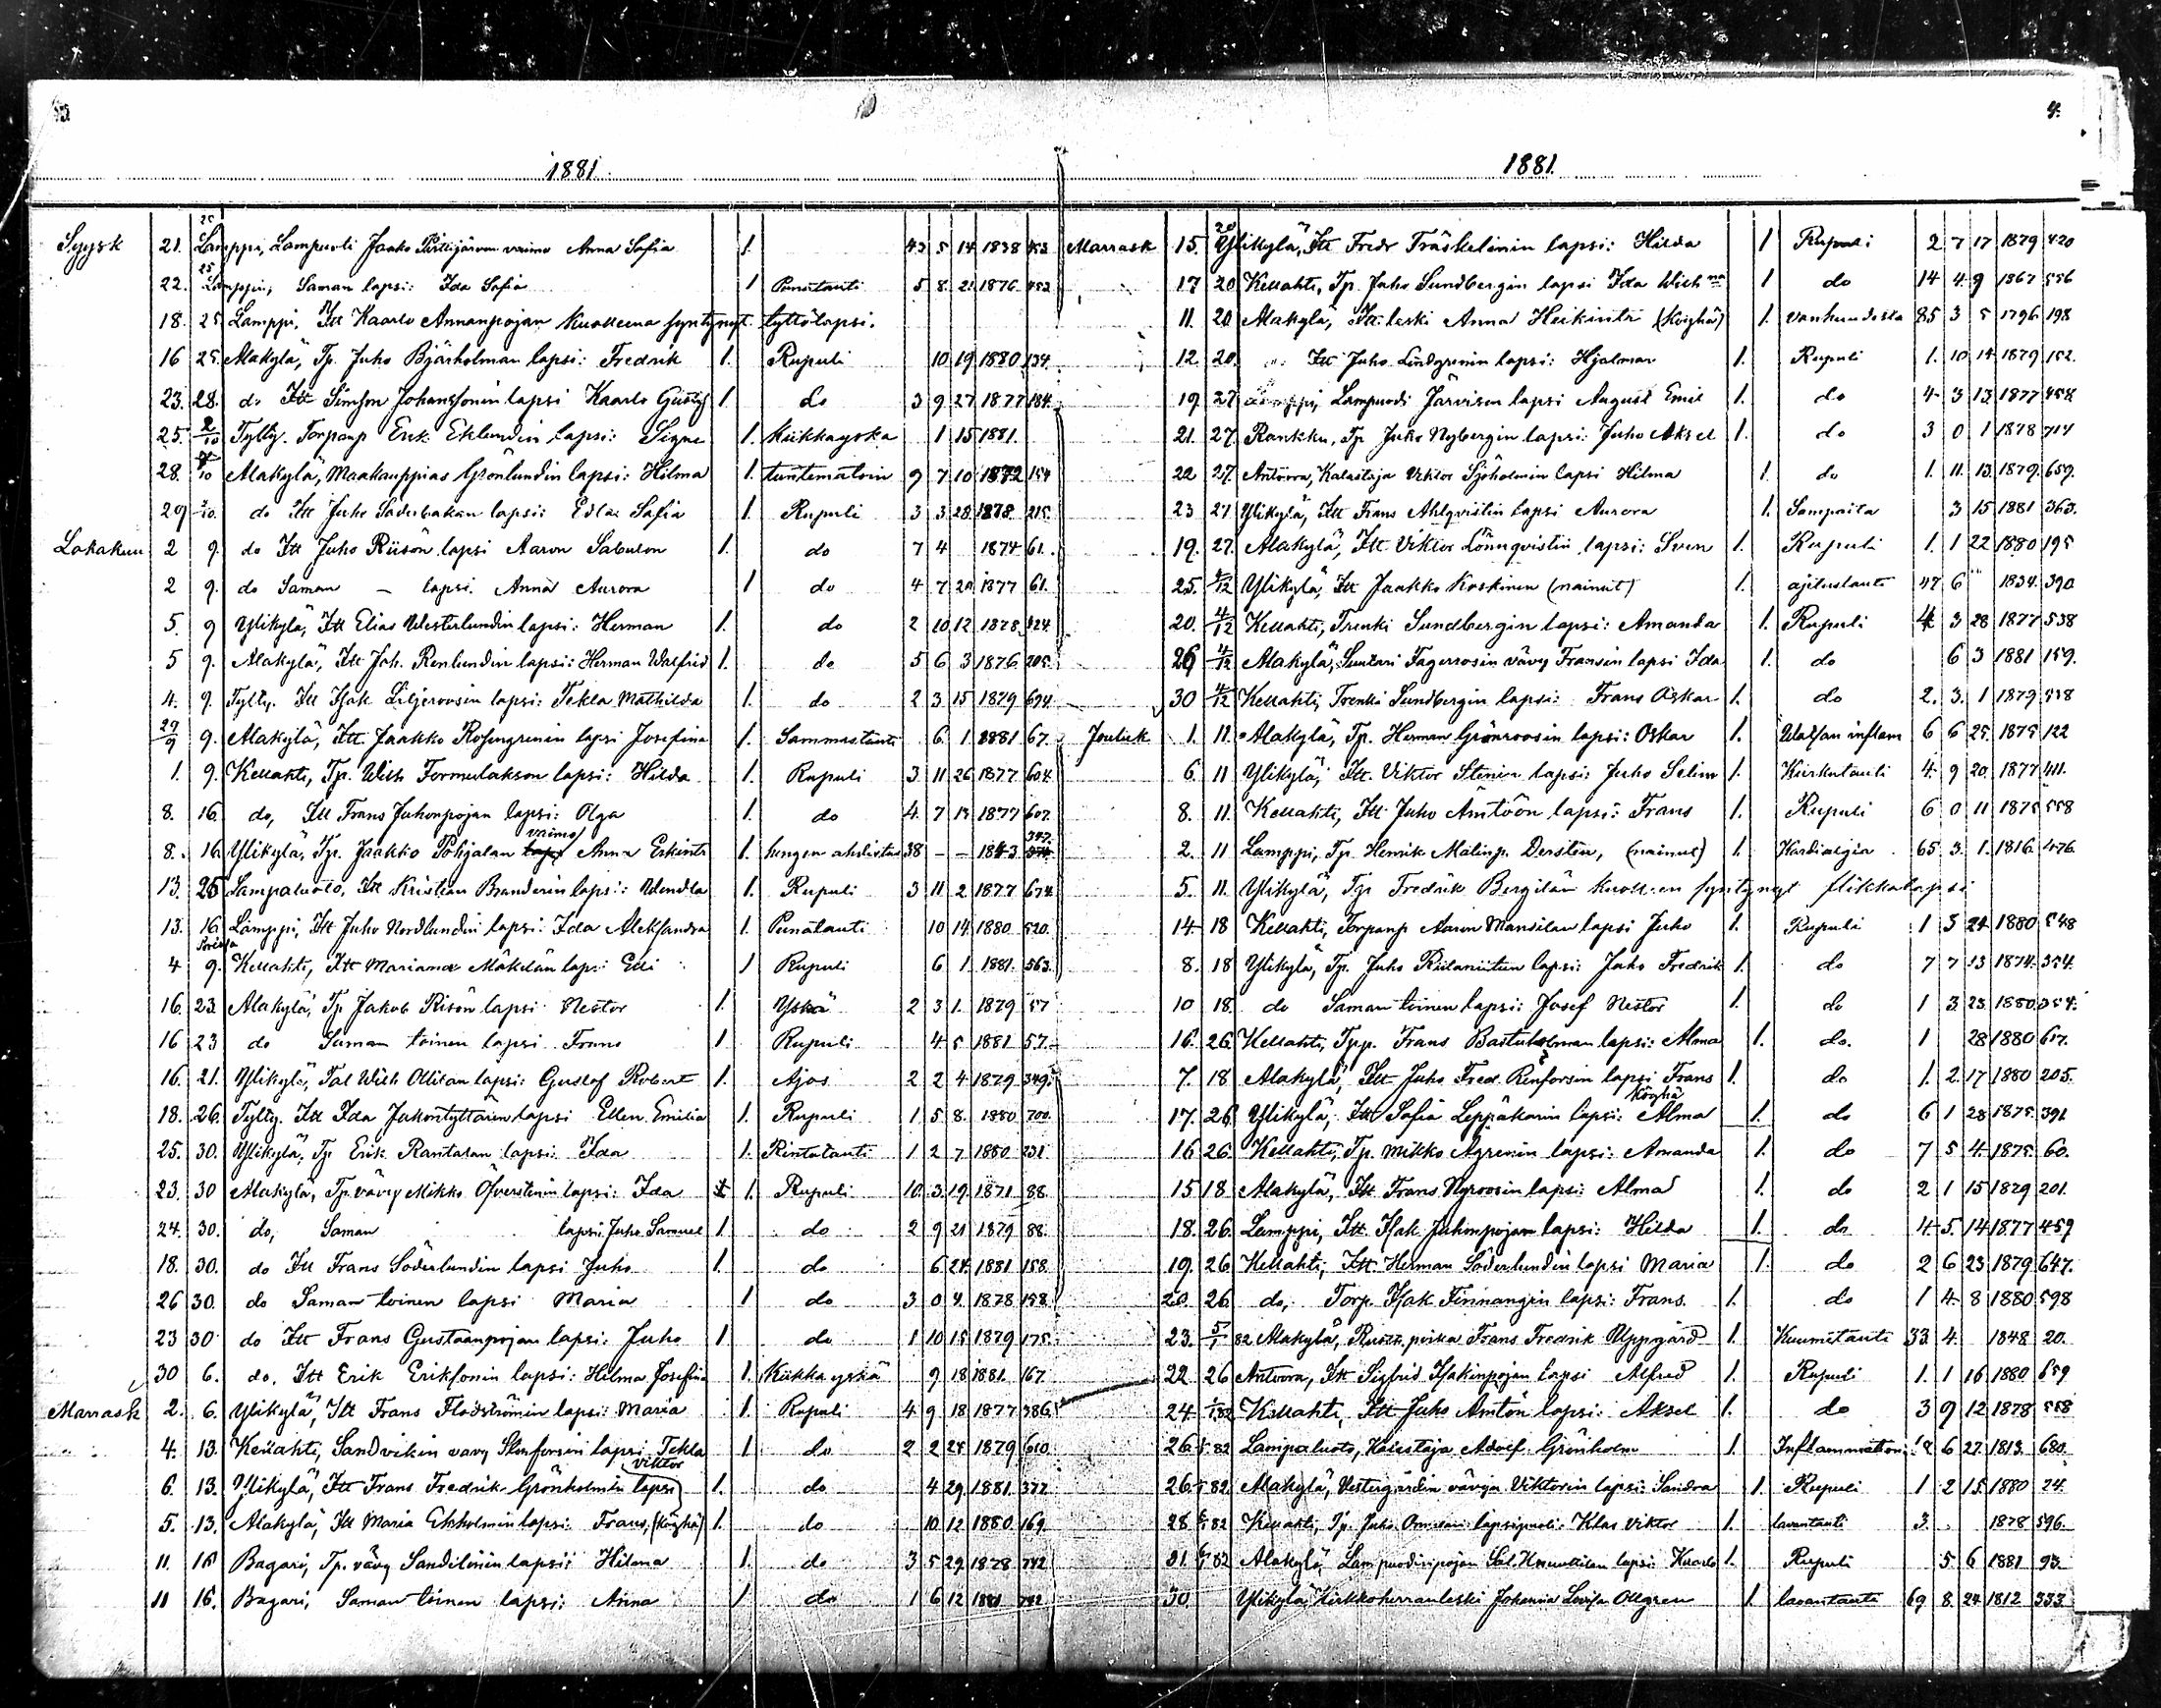 4.
1881.
Syysk 21. 25 Lamppi, Lampuoli Jaako vaimo Anna Sofia 1. 43 5 14 1838 453
22. 25 Lamppi, Saman lapsi: Ida Sofia 1 Punatauti 5 8 21 1876 452
18. 25 Lamppi, Itt Kaarlo Annanpojan kuolleena syntynyt tyttölapsi.
16 25 Alakylä, Tp. Juho Björholman lapsi: Fredrik 1. Rupuli 10 19 1880 134
23. 28. do Itt Simson Johanssonin lapsi Kaarlo Gustaf 1. do 3 9 27 1877 184
25. 2/10 Tyltty. Torpanp Erik Eklundin lapsi: Signe 1. Kiikkayska 1 15 1881.
28. /10 Alakylä, Maakauppias Grönlundin lapsi: Hilma 1. tuntematoin 9 7 10 1872 154
29 /10. do Itt Juho Söderbakan lapsi: Edla Sofia 1. Rupuli 3 3 28 1878 215
Lokakuu 2 9. do Itt Juho Riisön lapsi Aaron Sabulon 1. do 7 4 1874 61.
2 9. do Saman – lapsi. Anna Aurora 1 do 4 7 20 1877 61.
5. 9 Ylikylä, Itt Elias Westerlundin lapsi: Herman 1. do 2 10 12 1878 424
5 9. Alakylä, Itt Joh. Renlundin lapsi: Herman Walfrid 1. do 5 6 3 1876 205.
4. 9. Tyltty. Itt Isak Liljeroosin lapsi: Tekla Mathilda 1. do 2 3 15 1879 694
29/9 9. Alakylä, Itt. Jaakko Rosengrenin lapsi Josefina 1. Sammastauti 6. 1. 1881 67.
1. 9. Kellahti, Tp. Wilh Formulakson lapsi: Hilda 1. Rupuli 3 11 26 1877 604.
8. 16. do, Itt Frans Juhonpojan lapsi: Olga 1. do 4. 7 13 1877 607.
8. 16. Ylikylä, Tp. Jaakko Pohjalan vaimo Anna Eskintr 1. hengen ahdistus 38 – – 1843 347.
13. 25 Lampaluoto, Itt Kristian Branderin lapsi: Wendla 1. Rupuli 3 11 2 1877 674
13. 16 Lamppi, Itt Juho Nordlundin lapsi: Ida Aleksandra 1. Punatauti 10 14 1880 520.
4 9. Kellahti, Itt Mariana Mäkelän lapsi Elli 1 Rupuli 6 1. 1881. 563
16. 23. Alakylä, Tp Jakob Risön lapsi Nestor 1. Yskä 2 3 1. 1879 57
16 23 do Saman toinen lapsi Frans 1 Rupuli 4 5 1881 57.
16. 21. Ylikylä, Tal Wilh Ollilan lapsi: Gustaf Robert 1. Ajos 2 2 4 1879 349.
18. 26. Tyltty. Itt Ida Jakontyttären lapsi Ellen Emilia 1. Rupuli 1 5 8. 1880 700.
25. 30. Ylikylä, Tp Erik Rantasan lapsi: Ida 1. Rintatauti 1 2 7 1880 231
23. 30 Alakylä, Tp. vävy Mikko Öfverstenin lapsi: Ida 1. Rupuli 10. 3. 19. 1871 88.
24. 30. do, Saman lapsi Juho Samuel 1. do 2 9 21 1879 88.
18. 30. do Itt Frans Söderlundin lapsi Juho 1. do 6 24 1881 158.
26 30. do Saman toinen lapsi Maria 1 do 3 0 4. 1878 158
23 30 do Itt Frans Gustaanpojan lapsi: Juho 1 do 1 10 15 1879 175.
30 6. do, Itt Erik Eriksonin lapsi: Hilma Josefina 1. Kiikkayskä 9 18 1881. 167.
Marrask 2. 6. Ylikylä, Itt Frans Flodströmin lapsi: Maria 1. Rupuli 4 9 18 1877 386.
4. 13. Kellahti, Sandvikin vävy Stenforsin lapsi Tekla 1 do 2 2 24 1879 610
6. 13. Ylikylä, Itt Frans Fredrik Grönholmin lapsi Viktor 1. do 4 29 1881 377
5. 13. Alakylä, Itt Maria Ekholmin lapsi: Frans, (köyhä) 1. do 10 12 1880 169.
11. 16 Bagari, Tp. vävy Sandelinin lapsi: Hilma 1. do 3 5 29 1878 742
11 16. Bagari, Saman toinen lapsi: Anna 1 do 1 6 12 1881 742
1881.
Marrask 15. 20 Ylikylä, Itt Fredr Träskelinin lapsi: Hilda 1 Rupuli 2 7 17 1879 420
17 20 Kellahti, Tp. Juho Sundbergin lapsi Ida Wilhna 1 do 14 4 9 1867 556
11. 20 Alakylä, Itt. leski Anna Heikintr (köyhä) 1. vanhuudesta 85 3 5 1796 198
12. 20. Itt Juho Lindgrenin lapsi: Hjalmar 1. Rupuli 1. 10 14 1879 152.
19. 27 Lamppi, Lampuodi Järvisen lapsi August Emil 1. do 4 3 13 1877 458
21. 27. Rankku, Tp Juho Nybergin lapsi: Juho Aksel 1. do 3 0 1 1878 714
22 27. Antoora, Kalastaja Viktor Sjöholmin lapsi Hilma 1. do 1. 11. 13. 1879. 659.
23 27 Ylikylä, Itt Frans Ahlqvistin lapsi Aurora 1. Sampaita 3 15 1881 363.
19. 27. Alakylä, Itt. Viktor Lönnqvistin lapsi: Sven 1. Rupuli 1. 1 22 1880 195
25. 4/12 Ylikylä, Itt Jaakko Koskinen (nainut) 1. ajetustauti 47 6 1834. 390
20. 4/12 Kellahti, Trenki Sundbergin lapsi: Amanda 1. Rupuli 4 3 28 1877 538
26 4/12 Alakylä, Suntari Fagerrosin vävy Fransin lapsi Ida 1. do 6 3 1881 159.
30 4/12 Kellahti, Trenki Sundbergin lapsi: Frans Oskar 1. do 2. 3. 1 1879 558
Jouluk 1. 11. Alakylä, Tp. Herman Grönroosin lapsi: Oskar 1. Watsan inflam 6 6 25. 1875 122
6. 11 Ylikylä, Itt. Viktor Stenin lapsi: Juho Selim 1. Kurkutauti 4. 9 20. 1877 411.
8. 11. Kellahti, Itt Juho Ämtöön lapsi: Frans 1. Rupuli 6 0 11 1875 558
2. 11 Lamppi, Tp. Henrik Matinp. Derstin, (nainut) 1. Kardialgia 65 3. 1. 1816. 476.
5. 11. Ylikylä, Tp Fredrik Bergilän kuolleen syntynyt flikkalapsi
14. 18 Kellahti, Torpanp Aaron Mansilan lapsi Juho 1. Rupuli 1 3 24 1880 548
8. 18 Ylikylä, Tp. Juho Riilaniitun lapsi: Juho Fredrik 1. do 7 7 13 1874. 354.
10 18 do Saman toinen lapsi: Josef Nestor 1. do 1 3 23 1880. 354.
16. 26. Kellahti, Tpp. Frans Bastuholman lapsi: Alma 1. do. 1 28 1880 617.
7. 18 Alakylä, Itt Juho Fred. Renforsin lapsi Frans 1. do 1. 2. 17 1880 205.
17. 26 Ylikylä, Itt Sofia Leppäkarin lapsi: Alma köyhä 1. do 6 1 28 1875. 391
16 26. Kellahti, Tp. Mikko Agrenin lapsi: Amanda 1. do 7 5 4 1875. 60.
15 18 Alakylä, Itt. Frans Nyroosin lapsi: Alma 1. do 2 1 15 1879 201.
18. 26. Lamppi, Itt. Isak Juhonpojan lapsi: Hilda 1. do 4. 5. 14 1877 459
19. 26 Kellahti, Itt. Herman Söderlundin lapsi Maria 1. do 2 6 23 1879 647.
20. 26 do, Torp. Isak Finnangin lapsi: Frans. 1. do 1 4. 8 1880 598
23. 5/1 82 Alakylä, poika Frans Fredrik Uppgård 1. Kuumetauti 33 4. 1848 20.
22 26 Antoora, Itt Sigfrid Isakinpojan lapsi Alfred 1. Rupuli 1. 1 16 1880 659
24. 82 Kellahti, Itt Juho Ämtön lapsi: Aksel 1. do 3 9 12 1878 558
26. 82 Lampaluoto, Adolf Grönholm 1. Inflammation 68 6 27. 1813. 680.
26. 82. Alakylä, Vestergårdin vävyn Viktorin lapsi: Sandra 1. Rupuli 1 2 15 1880 24.
28 82 Kellahti, Tp. Juho lapsipuoli: Klas Viktor 1. lavantauti 3. 1878 596.
31. 82 Alakylä, Lampuodinpojan Sal. Knuutilan lapsi Kaarlo 1. Rupuli 5. 6 1881 93.
30. Ylikylä, Kirkkoherranleski Johanna Lovisa Ollgren 1. lavantauti 69 8. 24 1812 333